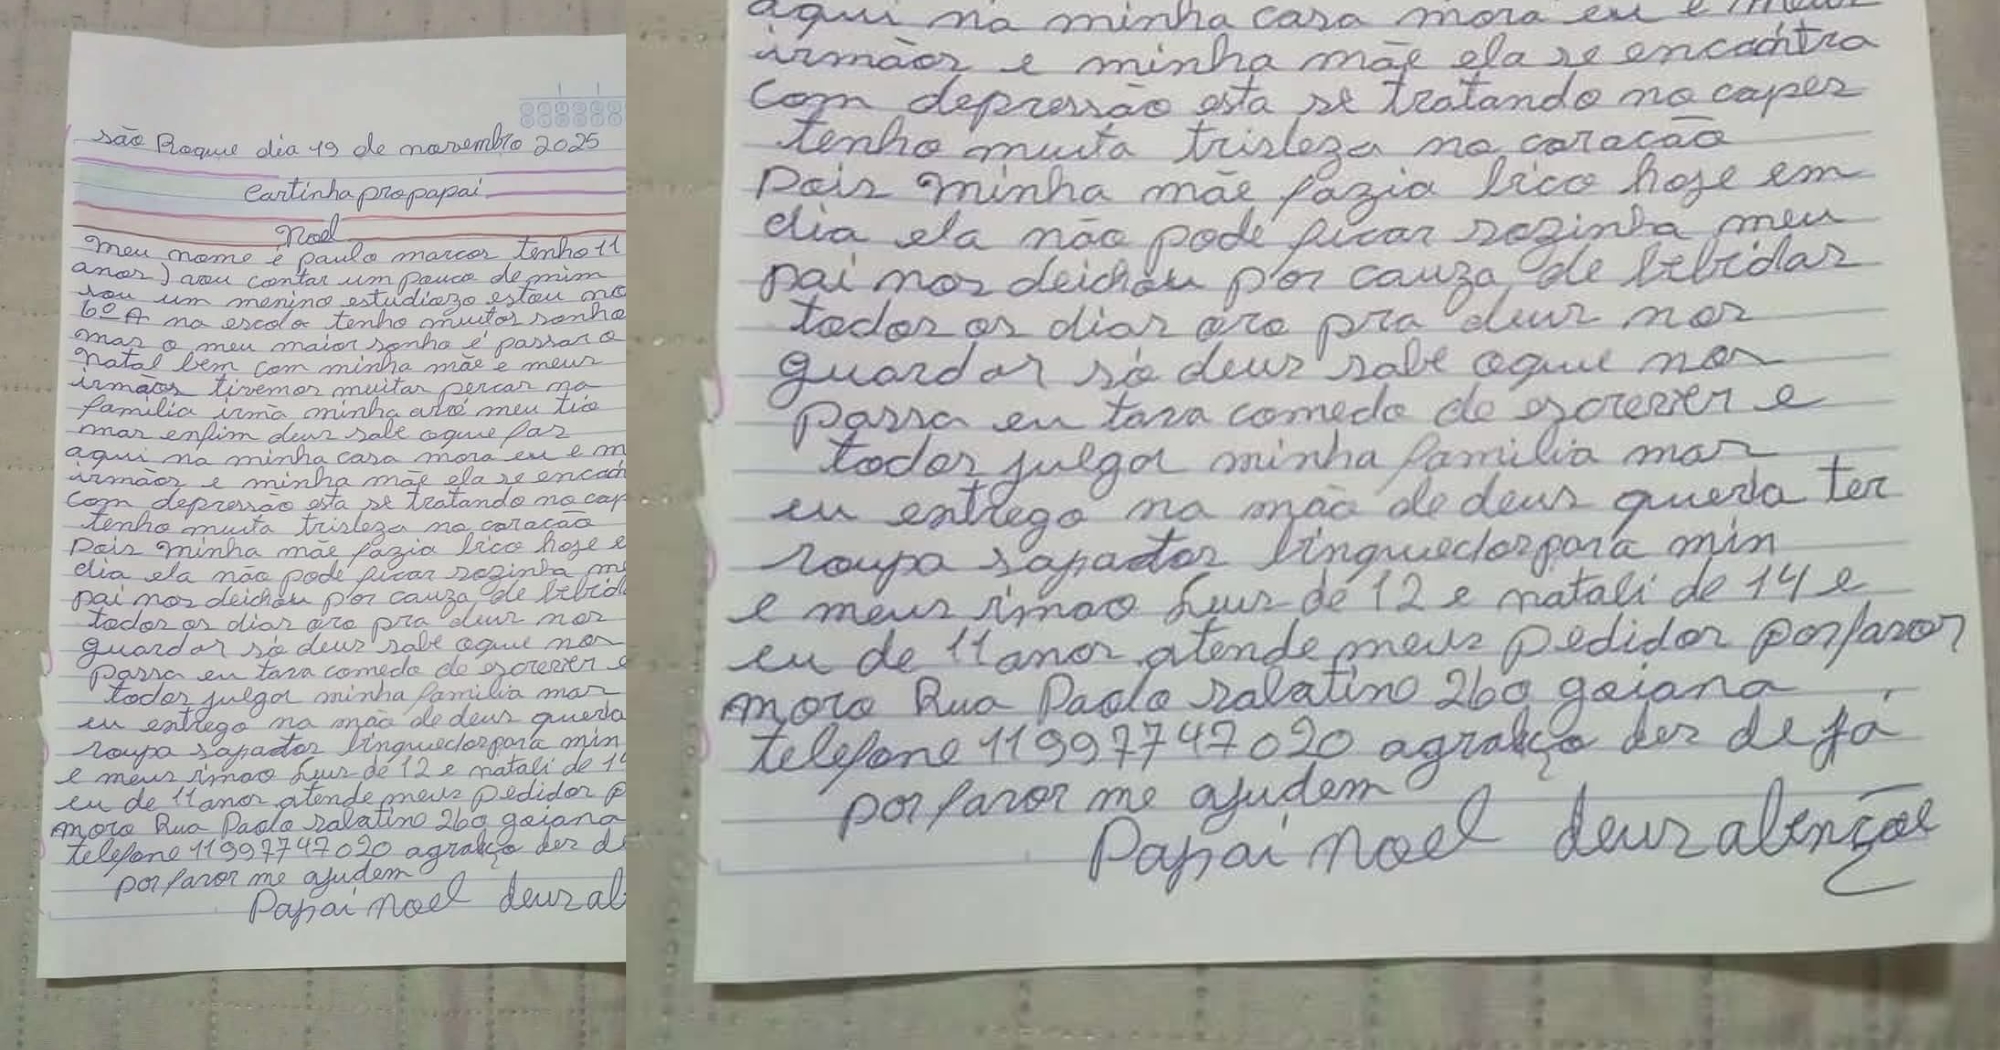 são Roque dia 19 de novembro 2025
Cartinha pro papai
Noel
Meu nome é paulo marcos tenho 11
anos) vou contar um pouco de mim
sou um menino estudiozo estou no
6º A na escola tenho muitos sonho
mas o meu maior sonho é passar o
Natal bem com minha mãe e meus
irmãos tivemos muitas percas na
familia irmã minha avró meu tio
mas enfim deus sabe oque faz
aqui na minha casa mora eu e m
irmãos e minha mãe ela se encon
com depressão esta se tratando no cap
tenho muita tristeza no coracão
Pois minha mãe fazia bico hoje e
dia ela não pode ficar sozinha me
pai nos deichou por cauza de bebida
todos os dias oro pra deus nos
guardar só deus sabe oque nos
passa eu tava comedo de escrever e
todos julga minha familia mas
eu entrego na mão de deus queria
roupa sapatos brinquedos para min
e meus irmao Luis de 12 e natali de 14
eu de 11 anos atende meus pedidos p
moro Rua Paolo salatino 260 goiana
telefone 11997747020 agradeço des de
por favor me ajudem
Papai Noel deus ab
aqui na minha casa mora eu e meus
irmãos e minha mãe ela se encontra
com depressão esta se tratando no capes
tenho muita tristeza no coracão
Pois minha mãe fazia bico hoje em
dia ela não pode ficar sozinha meu
pai nos deichou por cauza de bebidas
todos os dias oro pra deus nos
guardar só deus sabe oque nos
passa eu tava comedo de escrever e
todos julga minha familia mas
eu entrego na mão de deus queria ter
roupa sapatos brinquedos para min
e meus irmao Luis de 12 e natali de 14 e
eu de 11 anos atende meus pedidos por favor
moro Rua Paolo salatino 260 goiana
telefone 11997747020 agradeço des de já
por favor me ajudem
Papai Noel deus abençõe